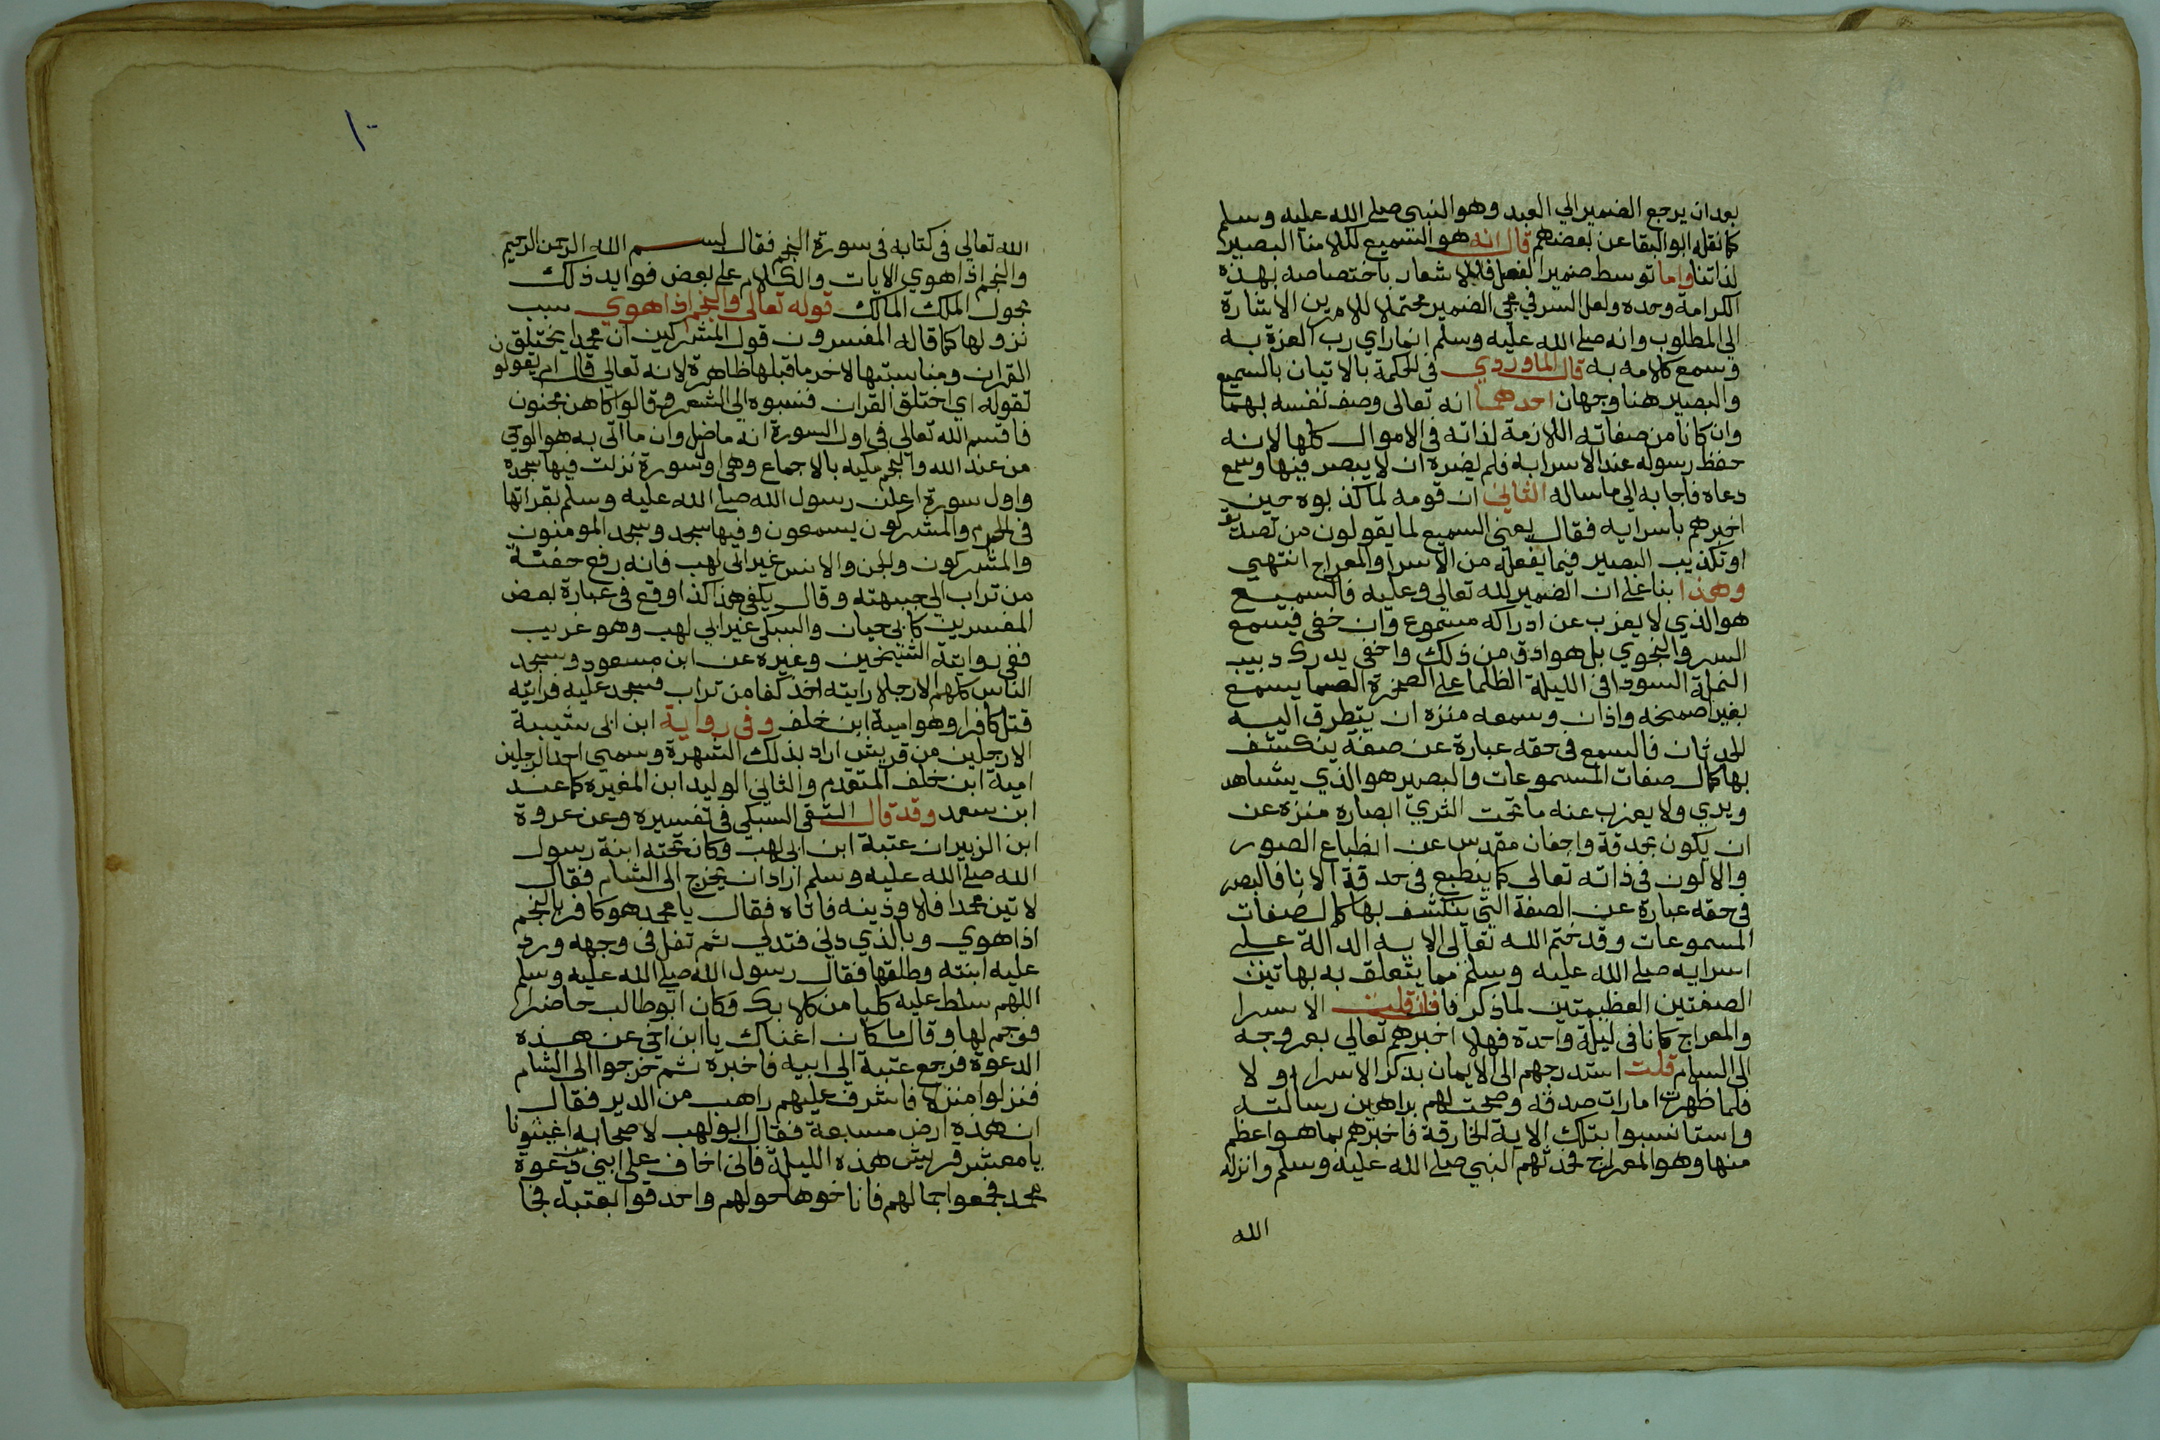 بعد ان يرجع الضمير الي العبد وهو النبي صلي الله عليه وسلم
كما نقله ابو البقا عن بعضهم قال انه هو السميع لكلامنا البصير
لذاتنا واما توسط ضمير الفصل فللاشعار باختصاصه بهذه
الكرامة وحده ولعل السر في مجي الضمير محتملا للامرين الاشارة
الي المطلوب وانه صلي الله عليه وسلم انما راي رب العزة به
وسمع كلامه به قال الماوردي في الحكمة بالاتيان بالسميع
والبصير هنا وجهان احدهما انه تعالى وصف نفسه بهما
وان كانا من صفاته اللازمة لذاته في الاموال كلها لانه
حفظ رسوله عند الاسرا به فلم يضره ان لا يبصر فيها وسمع
دعاه فاجابه الي ماساله الثاني ان قومه لما كذبوه حين
اخبرهم باسرايه فقال يعني السميع لما يقولون من تصديق
او تكذيب البصير فيما يفعله من الاسرا والمعراج انتهي
وهذا بنا علي ان الضمير لله تعالي وعليه فالسميع
هو الذي لا يعزب عن ادراكه مسموع وان خفي فيسمع
السر والنجوي بل هو ادق من ذلك واخفي يدرك دبيب
النملة السودا في الليلة الظلما علي الصخرة الصما يسمع
بغير اصمخه واذان وسمعه منزه ان يتطرق اليه
الحدثان فالسمع في حقه عبارة عن صفة ينكشف
بها كمال صفات المسموعات والبصير هو الذي يشاهد
ويري ولا يعزب عنه ما تحت الثري ابصاره منزه عن
ان يكون بحدقة واجفان مقدس عن انطباع الصور
والالون في ذاته تعالى كما ينطبع في حدقة الانا فالبصر
في حقه عبارة عن الصفة التي ينكشف بها كمال صفات
المسموعات وقد ختم الله تعالى الايه الدالة علي
اسرايه صلي الله عليه وسلم مما يتعلق به بهاتين
الصفتين العظيمتين لما ذكر فا فان قلت الاسرا
والمعراج كانا في ليلة واحدة فهلا اخبرهم تعالي بعروجه
الي السمام قلت استدرجهم الي الايمان بذكر الاسرا اولا
فلما ظهرت امارات صدقه وصحت لهم براهين رسالته
واستانسوا بتلك الاية الخارقة فاخبرهم بما هو اعظم
منها وهو المعراج فحدثهم النبي صلي الله عليه وسلم وانزله
الله
١٠
الله تعالي في كتابه في سورة النجم فقال بسم الله الرحمن الرحيم
والنجم اذا هوي الايات والكلام علي بعض فوايد ذلك
بحول الملك المالك قوله تعالى والنجم اذا هوي سبب
نزولها كما قاله المفسرون قول المشركين ان محمدا يختلق
القران ومناسبتها لاخر ما قبلها ظاهرة لانه تعالي قال ام يقولون
تقوله اي اختلق القران فنسبوه الي الشعر وقالوا كاهن مجنون
فاقسم الله تعالي في اول السورة انه ما ضل وان ما اتي به هو الوحي
من عند الله والنجم مكيه بالاجماع وهي اول سورة نزلت فيها سجده
واول سورة اعلن رسول الله صلي الله عليه وسلم بقراتها
في الحرم والمشركون يسمعون وفيها سجد وسجد المومنون
والمشركون والجن والانس غير ابي لهب فانه رفع حفنة
من تراب الي جبهته وقال يكفي هذا كذا وقع في عبارة بعض
المفسرين كابي حيان والسبكي غير ابي لهب وهو غريب
ففي رواية الشيخين وغيره عن ابن مسعود وسجد
الناس كلهم الا رجلا رايته اخذ كفا من تراب فسجد عليه فرايته
قتل كافرا وهو امية ابن خلف وفي رواية ابن ابي شيبة
الا رجلين من قريش اراد بذلك الشهرة وسمي احد الرجلين
امية ابن خلف المتقدم والثاني الوليد ابن المغيره كما عند
ابن سعد وقد قال التقي السبكي في تفسيره وعن عروة
ابن الزبير ان عتبة ابن ابي لهب وكان تحته ابنة رسول
الله صلي الله عليه وسلم اراد ان يخرج الي الشام فقال
لاتين محمدا فلاوذينه فاتاه فقال يا محمد هو كافر بالنجم
اذا هوي وبالذي دني فتدلي ثم تفل في وجهه ورد
عليه ابنته وطلقها فقال رسول الله صلي الله عليه وسلم
اللهم سلط عليه كلبا من كلابك وكان ابو طالب حاضرا
فوجم لها وقال ما كان اغناك يا ابن اخي عن هذه
الدعوة فرجع عتبة الي ابيه فاخبره ثم خرجوا الي الشام
فنزلوا منزلا فاشرف عليهم راهب من الدير فقال
ان هذه ارض مسبعة فقال ابو لهب لاصحابه اغيثونا
يا معشر قريش هذه الليلة فاني اخاف علي ابني من دعوة
محمد فجمعوا جمالهم فاناخوها حولهم واحدقوا بعتبه فجا